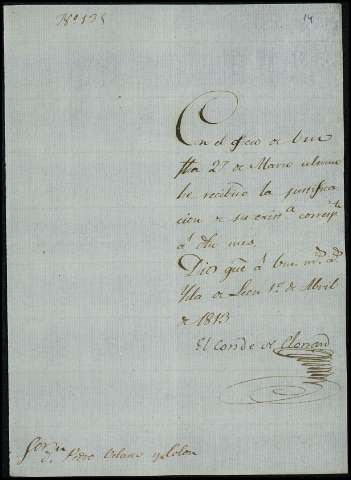 Nº 138
14
Con el oficio de
fha 27 de Marzo ultimo
he recibido la justifica
cion de su existª corresp.te
á dho mes.
Dios gue á
Ysla de Leon 1º de Abril
de 1813
El Conde de Clonard
Pedro y Colon